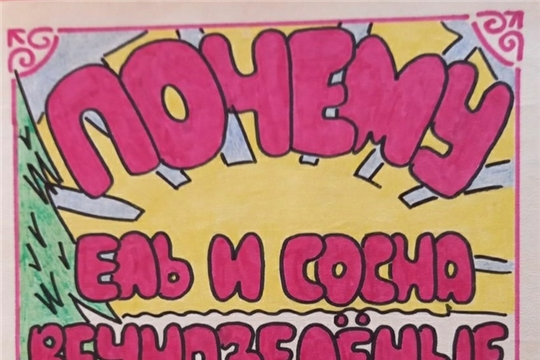 ПОЧЕМУ
ЕЛЬ И СОСНА
ВЕЧНОЗЕЛЁНЫЕ